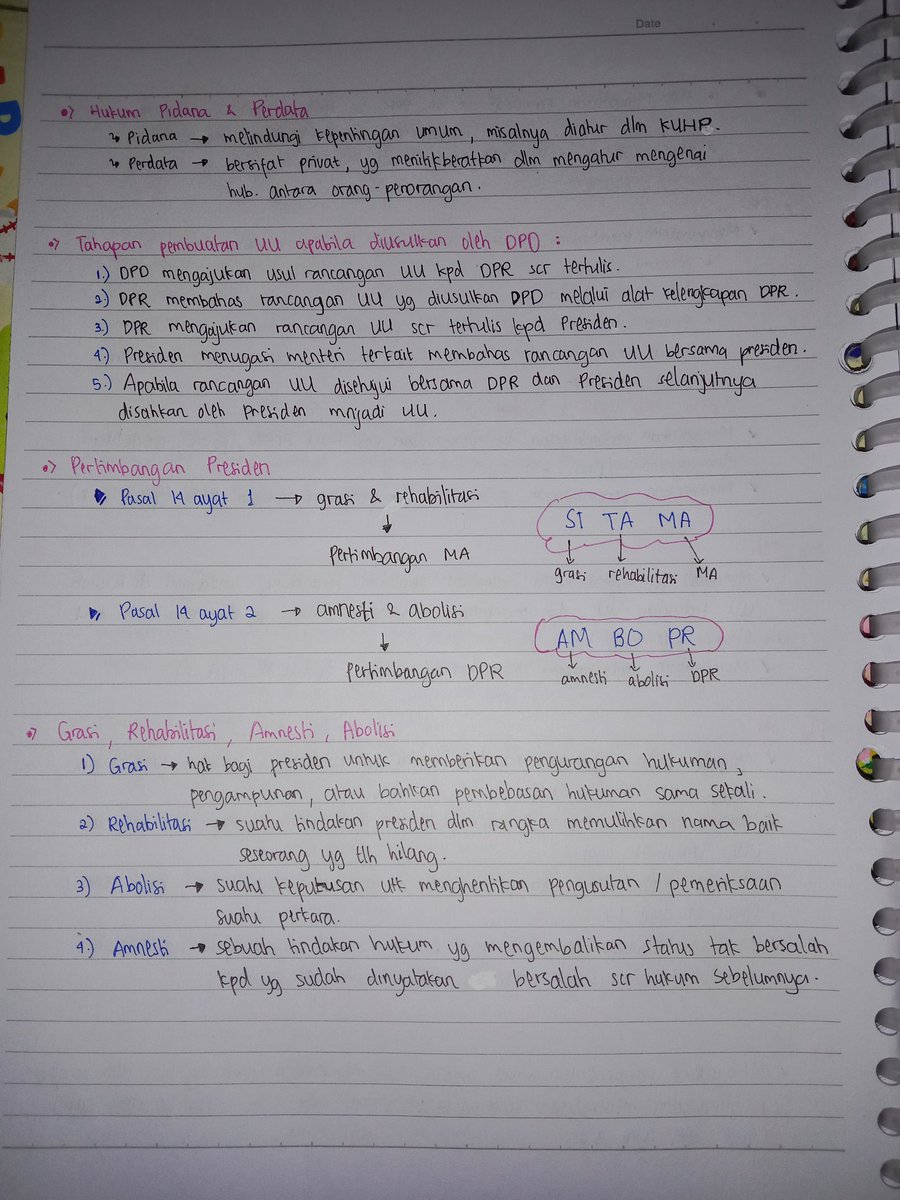 Date
•) Hukum Pidana & Perdata
↳ Pidana → melindungi kepentingan umum, misalnya diatur dlm KUHP.
↳ Perdata → bersifat privat, yg menitikberatkan dlm mengatur mengenai
hub. antara orang-perorangan.
•) Tahapan pembuatan UU apabila diusulkan oleh DPD :
1.) DPD mengajukan usul rancangan UU kpd DPR scr tertulis.
2) DPR membahas rancangan UU yg diusulkan DPD melalui alat kelengkapan DPR.
3.) DPR mengajukan rancangan UU scr tertulis kpd Presiden.
4.) Presiden menugasi menteri terkait membahas rancangan UU bersama presiden.
5.) Apabila rancangan UU disetujui bersama DPR dan Presiden selanjutnya
disahkan oleh presiden mnjadi UU.
•) Pertimbangan Presiden
Pasal 14 ayat 1 → grasi & rehabilitasi
Pertimbangan MA
SI TA MA
grasi rehabilitasi MA
Pasal 14 ayat 2 → amnesti & abolisi
Pertimbangan DPR
AM BO PR
amnesti abolisi DPR
•) Grasi, Rehabilitasi, Amnesti, Abolisi
1) Grasi → hak bagi presiden untuk memberikan pengurangan hukuman,
pengampunan, atau bahkan pembebasan hukuman sama sekali.
2) Rehabilitasi → suatu tindakan presiden dlm rangka memulihkan nama baik
seseorang yg tlh hilang.
3) Abolisi → suatu keputusan utk menghentikan pengusutan / pemeriksaan
suatu perkara.
4.) Amnesti → sebuah tindakan hukum yg mengembalikan status tak bersalah
kpd yg sudah dinyatakan bersalah scr hukum sebelumnya.